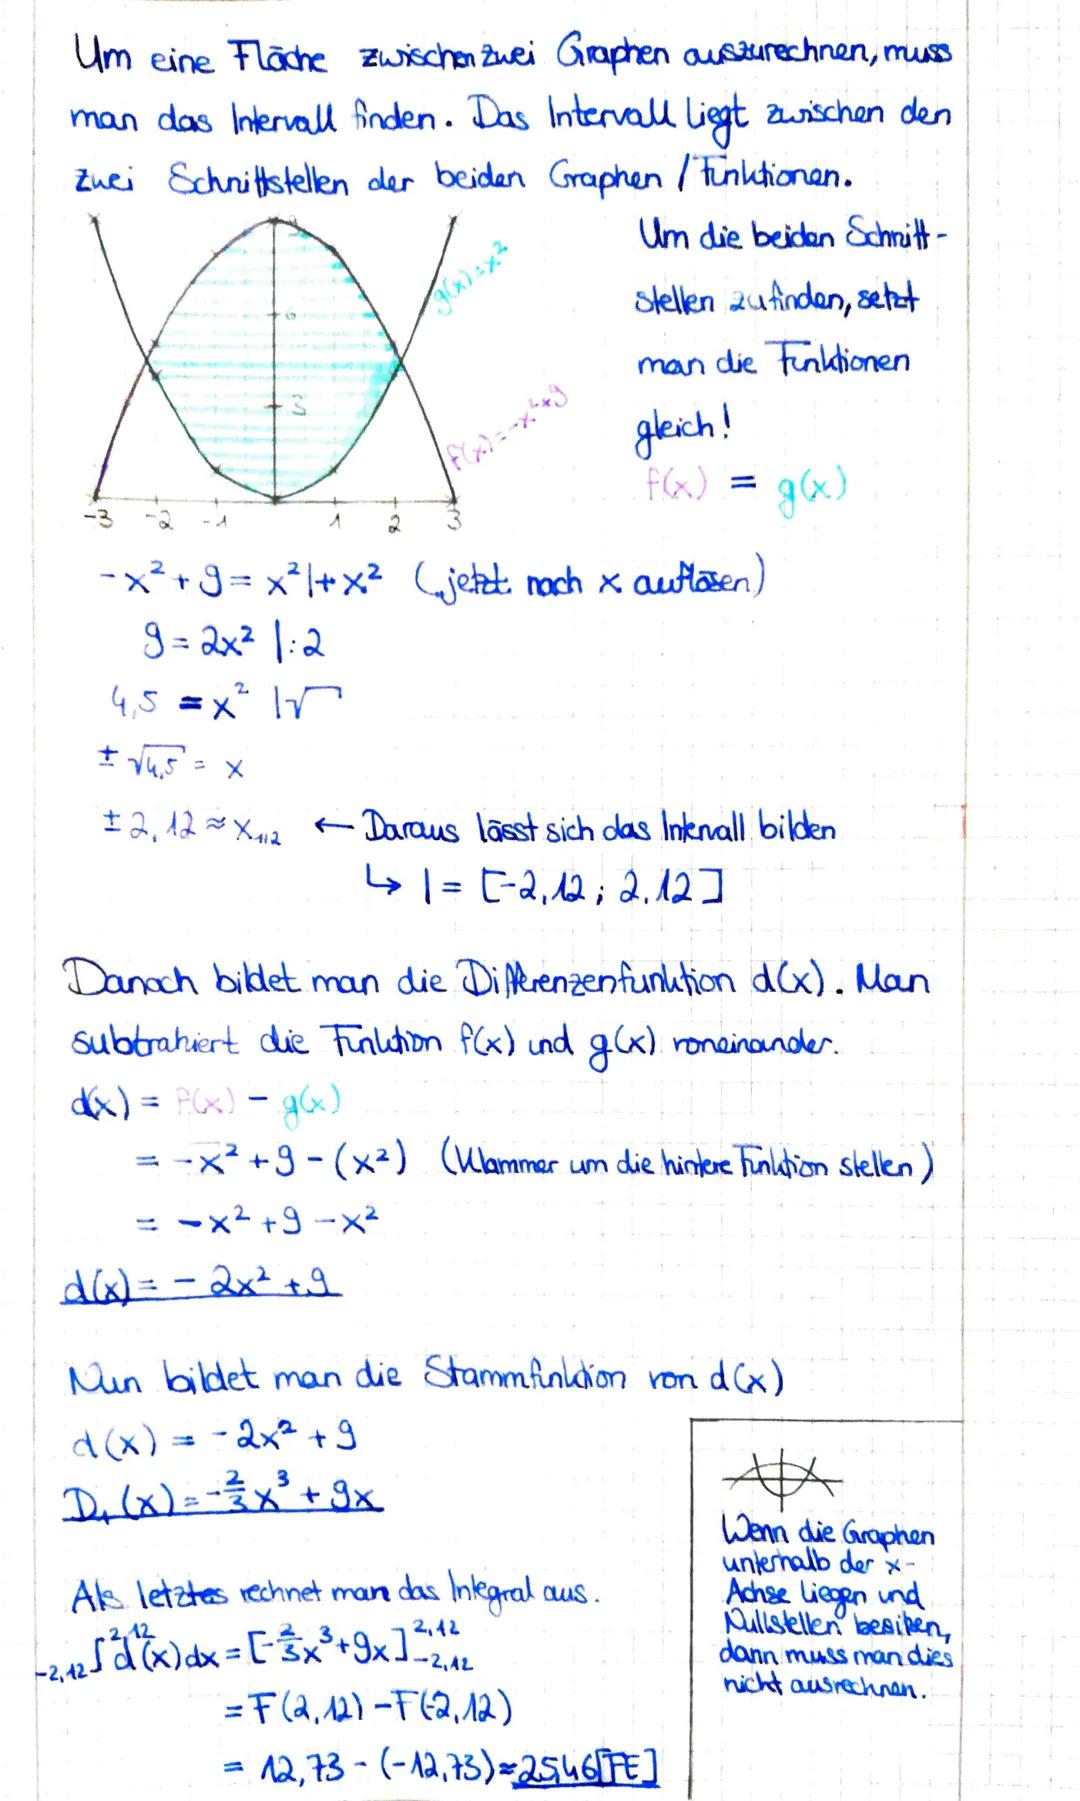 Um eine Fläche zwischen zwei Graphen auszurechnen, muss
man das Intervall finden. Das Intervall liegt zwischen den
zwei Schnittstellen der beiden Graphen / Funktionen.
Um die beiden Schnitt-
stellen zu finden, setzt
man die Funktionen
gleich!
f(x) = g(x)
g(x)=x²
6
3
f(x)=-x²+9
-3 -2 -1 1 2 3
-x²+9=x² |+x² (jetzt nach x auflösen)
9=2x² |:2
4,5 = x² |√
±√4,5 = x
±2,12≈x₁,₂ ← Daraus lässt sich das Intervall bilden
↳ I = [-2,12 ; 2,12]
Danach bildet man die Differenzenfunktion d(x). Man
subtrahiert die Funktion f(x) und g(x) voneinander.
d(x) = f(x) - g(x)
= -x²+9-(x²) (Klammer um die hintere Funktion stellen)
= -x²+9-x²
d(x) = -2x²+9
Nun bildet man die Stammfunktion von d(x)
d(x) = -2x²+9
D₁(x)=-2/3x³+9x
Als letztes rechnet man das Integral aus.
-2,12∫2,12 d(x)dx = [-2/3x³+9x]2,12 -2,12
= F(2,12) - F(-2,12)
= 12,73 - (-12,73)≈25,46[FE]
Wenn die Graphen
unterhalb der x-
Achse liegen und
Nullstellen besitzen,
dann muss man dies
nicht ausrechnen.